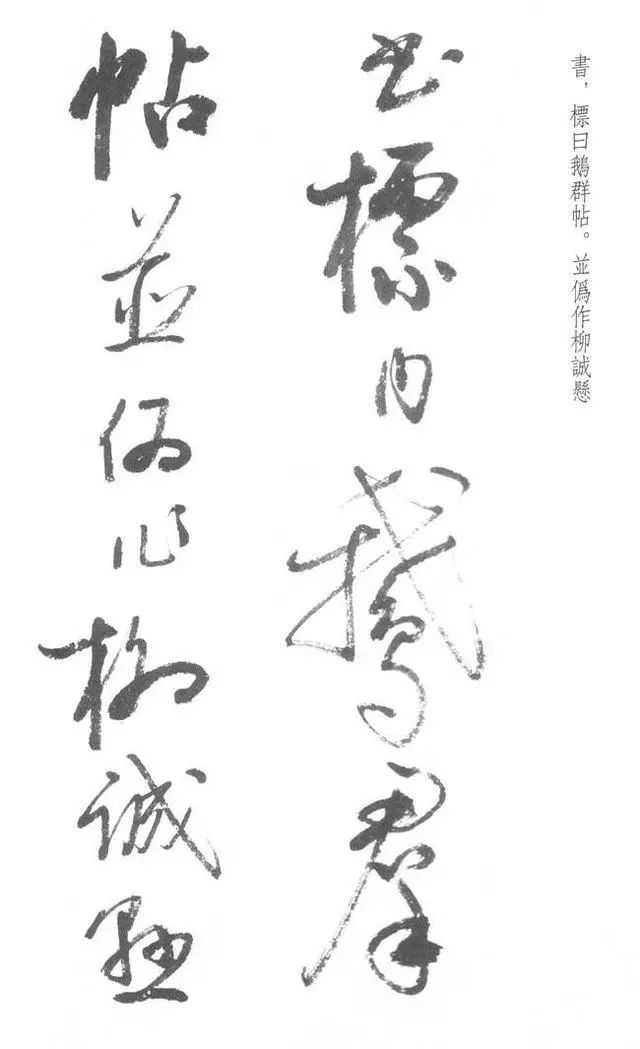 書，標曰鵝群帖。並僞作柳誠懸
書標曰鵝羣
帖並偽作柳誠懸